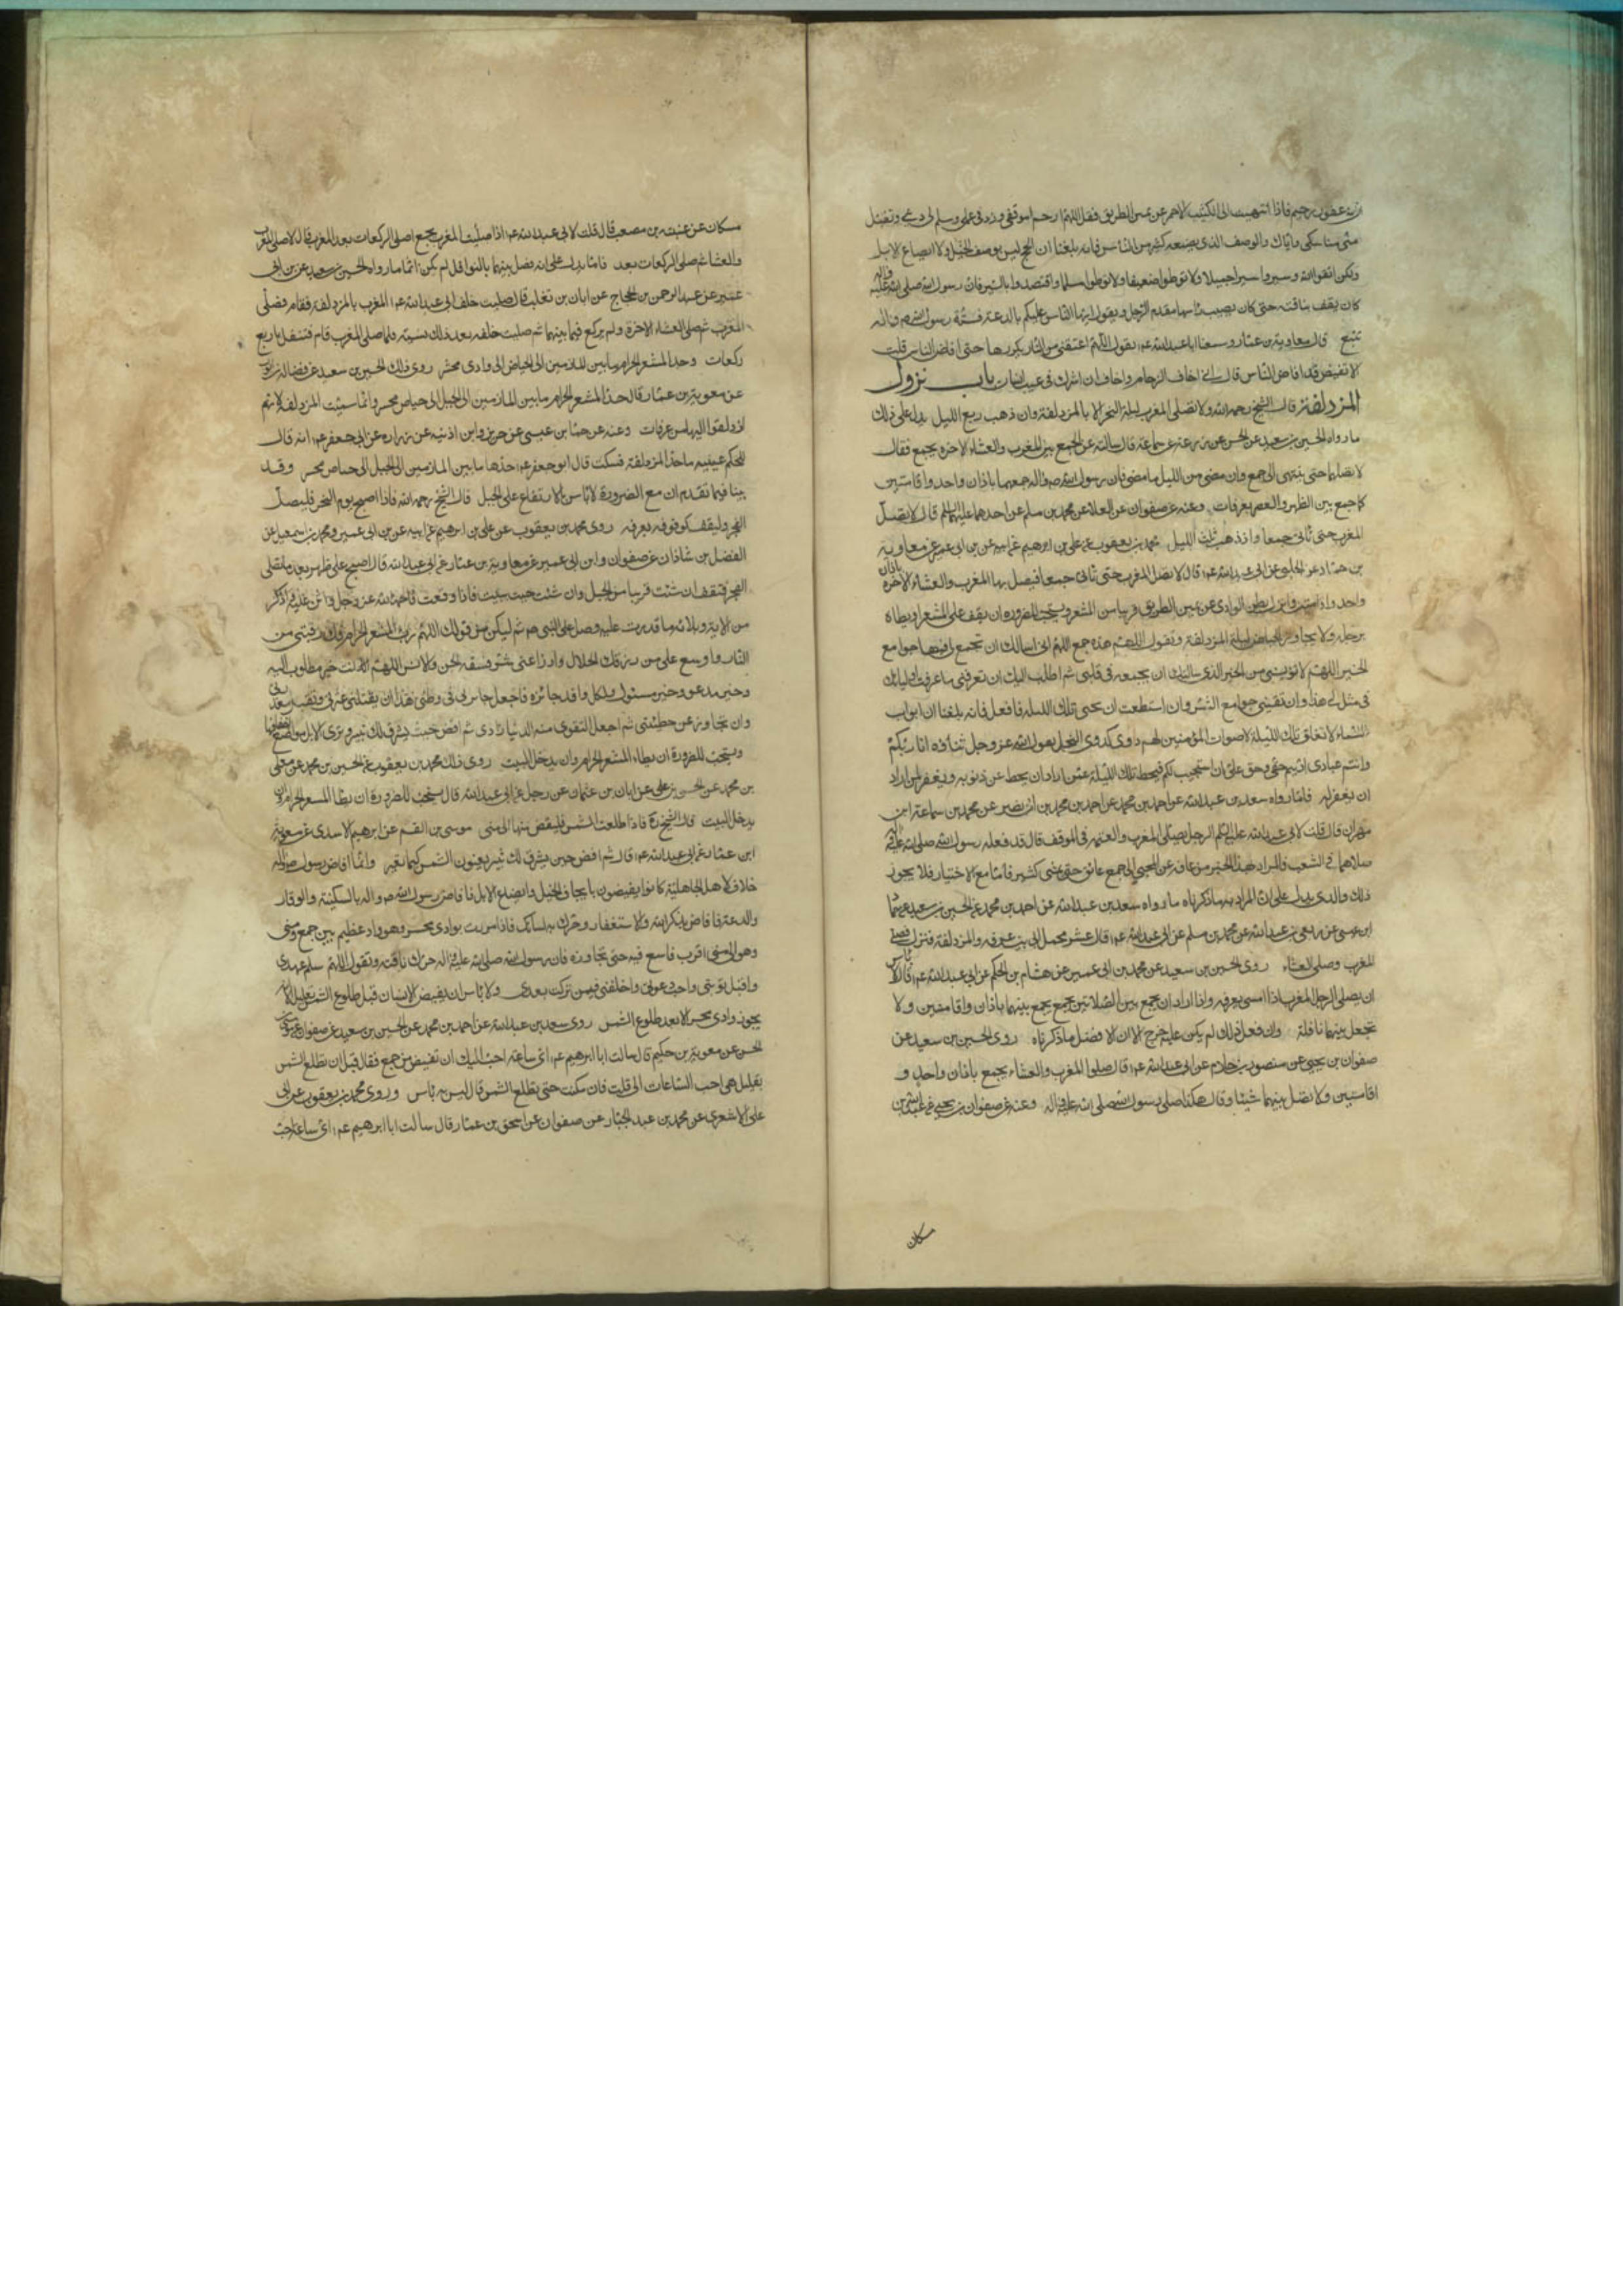 ان الله غفور رحيم فاذا انتهيت الى الكثيب الاحمر عن يمين الطريق فقل اللهم ارحم موقفي وزد في عملي وسلم لي ديني وتقبل
مناسكي واياك والوصف الذي يصنعه كثير من الناس فانه بلغنا ان الحج ليس بوصف الخيل ولا ايضاع الابل
ولكن اتقوا الله وسيروا سيرا جميلا ولا توطوا ضعيفا ولا توطوا مسلما واقتصدوا في السير فان رسول الله صلى الله عليه واله
كان يقف بناقته حتى كان يصيب راسها مقدم الرجل ويقول ايها الناس عليكم بالدعة فسنة رسول الله ص واله
تتبع قال معاوية بن عمار وسمعت ابا عبد الله عم يقول اللهم اعتقني من النار يكررها حتى افاض الناس قلت
لا تفيض قد افاض الناس قال اني اخاف الزحام واخاف ان اشرك في عنت انسان باب نزول
المزدلفة قال الشيخ رحمه الله ولا تصلى المغرب ليلة النحر الا بالمزدلفة وان ذهب ربع الليل يدل على ذلك
ما رواه الحسين بن سعيد عن الحسن عن زرعة عن سماعة قال سالته عن الجمع بين المغرب والعشاء الاخرة بجمع فقال
لا تصلهما حتى ينتهى الى جمع وان مضى من الليل ما مضى فان رسول الله ص واله جمعهما باذان واحد واقامتين
كما جمع بين الظهر والعصر بعرفات وعنه عن صفوان عن العلا عن محمد بن مسلم عن احدهما عليهما السلم قال لا تصل
المغرب حتى تاتى جمعا وان ذهب ثلث الليل محمد بن يعقوب عن علي بن ابرهيم عن ابيه عن بن ابي عمير عن معاوية
بن حماد عن الحلبي عن ابي عبد الله عم قال لا تصل المغرب حتى تاتى جمعا فيصل بها المغرب والعشاء الاخرة باذان
واحد واقامتين وانزل بطن الوادي عن يمين الطريق قريبا من المشعر ويستحب للصرورة ان يقف على المشعر ويطاه
برجله ولا يجاوز الحياض ليلة المزدلفة وتقول اللهم هذه جمع اللهم اني اسالك ان تجمع لي فيها جوامع
الخير اللهم لا تويسني من الخير الذي سالتك ان تجمعه في قلبي ثم اطلب اليك ان تعرفني ما عرفت اوليائك
في منزلي هذا وان تقيني جوامع الشر وان استطعت ان تحيى تلك الليلة فافعل فانه بلغنا ان ابواب
السماء لا تغلق تلك الليلة لاصوات المؤمنين لهم دوي كدوي النحل يقول الله عز وجل ثناؤه انا ربكم
وانتم عبادي اديتم حقي وحق علي ان استجيب لكم فيحط تلك الليلة عمن اراد ان يحط عن ذنوبه ويغفر لمن اراد
ان يغفر له فاما رواه سعد بن عبد الله عن احمد بن محمد عن احمد بن محمد بن ابي نصير عن محمد بن سماعة ابن
مهران قال قلت لابي عبد الله عليه السلم الرجل يصلى المغرب والعتمه في الموقف قال قد فعله رسول الله صلى الله عليه واله
صلاهما في الشعب فالمراد بهذا الخبر من عاقه عن المجيئ الى جمع عائق حتى يمضى كثير فاما مع الاختيار فلا يجوز
ذلك والذي يدل على ان المراد به ما ذكرناه ما رواه سعد بن عبد الله عن احمد بن محمد عن الحسين بن سعيد عن حماد
ابن عيسى عن ربعي بن عبد الله عن محمد بن مسلم عن ابي عبد الله عم قال عثر محمل ابي بين عرفه والمزدلفة فنزل فصلى
المغرب وصلى العشاء روى الحسين بن سعيد عن محمد بن ابي عمير عن هشام بن الحكم عن ابي عبد الله عم قال لا باس
ان يصلى الرجل المغرب اذا امسى بعرفه واذا اراد ان يجمع بين الصلاتين بجمع يجمع بينهما باذان واقامتين ولا
تجعل بينهما نافلة وان فعل ذلك لم يكن عليه حرج الا ان الافضل ما ذكرناه روى الحسين بن سعيد عن
صفوان بن يحيى عن منصور بن حازم عن ابي عبد الله عم قال صلوا المغرب والعشاء بجمع باذان واحد و
اقامتين ولا تصل بينهما شيئا وقال هكذا صلى رسول الله صلى الله عليه واله وعنه عن صفوان بن يحيى عن عبد الله بن
مسكان
مسكان عن عنبسه بن مصعب قال قلت لابي عبد الله عم اذا صليت المغرب بجمع اصلى الركعات بعد المغرب قال لا صلى المغرب
والعشا ثم صلى الركعات بعد فاما يدل على انه فصل بينهما بالنوافل لم يكن اثما ما رواه الحسين بن سعيد عن بن ابي
عمير عن عبد الرحمن بن الحجاج عن ابان بن تغلب قال صليت خلف ابي عبد الله عم المغرب بالمزدلفة فقام فصلى
المغرب ثم صلى العشاء الاخرة ولم يركع فيما بينهما ثم صليت خلفه بعد ذلك بسنة فلما صلى المغرب قام فتنفل باربع
ركعات وحد المشعر الحرام ما بين المازمين الى الحياض الى وادي محسر روى ذلك الحسين بن سعيد عن فضاله بن ايوب
عن معوية بن عمار قال حد المشعر الحرام ما بين المازمين الى الجبل الى حياض محسر وانما سميت المزدلفة لانهم
ازدلفوا اليها من عرفات وعنه عن حماد بن عيسى عن حريز وابن اذينه عن زراره عن ابي جعفر عم انه قال
للحكم بن عيينه ما حد المزدلفة فسكت قال ابو جعفر عم حدها ما بين المازمين الى الجبل الى حياض محسر وقد
بينا فيما تقدم ان مع الضرورة لا باس بالارتفاع على الجبل قال الشيخ رحمه الله فاذا اصبح يوم النحر فليصل
الفجر وليقف كوقوفه بعرفه روى محمد بن يعقوب عن علي بن ابرهيم عن ابيه عن بن ابي عمير ومحمد بن اسمعيل عن
الفضل بن شاذان عن صفوان وابن ابي عمير عن معاوية بن عمار عن ابي عبد الله قال اصبح على طهر بعد ما تصلى
الفجر فتقف ان شئت قريبا من الجبل وان شئت حيث تبيت فاذا وقفت فاحمد الله عز وجل واثن عليه واذكر
من الائه وبلائه ما قدرت عليه وصل على النبي ص ثم ليكن من قولك اللهم رب المشعر الحرام فك رقبتي من
النار واوسع على من رزقك الحلال وادرا عني شر فسقة الجن والانس اللهم انت خير مطلوب اليه
وخير مدعو وخير مسئول ولكل وافد جائزه فاجعل جائزتي في وطني هذا ان تقيلني عثرتي وتقبل معذرتي
وان تجاوز عن خطيئتي ثم اجعل التقوى من الدنيا زادي ثم افض حيث يشرق لك ثبير وترى الابل مواضع اخفافها
ويستحب للصرورة ان يطاء المشعر الحرام وان يدخل البيت روى ذلك محمد بن يعقوب عن الحسين بن محمد عن معلى
بن محمد عن الحسن بن علي عن ابان بن عثمان عن رجل عن ابي عبد الله قال يستحب للصرورة ان يطا المشعر الحرام وان
يدخل البيت قال الشيخ ره فاذا طلعت الشمس فليفض منها الى منى موسى بن القسم عن ابرهيم الاسدي عن معوية
ابن عمار عن ابي عبد الله عم قال ثم افض حين يشرق لك ثبير يعنون الشمس كيما نغير وانما افاض رسول الله ص واله
خلاف لاهل الجاهلية كانوا يفيضون بايجاف الخيل وايضاع الابل فافاض رسول الله ص واله بالسكينة والوقار
والدعة فافاض بذكر الله والاستغفار وحرك به لسانك فاذا مررت بوادي محسر وهو واد عظيم بين جمع ومنى
وهو الى منى اقرب فاسع فيه حتى تجاوزه فان رسول الله صلى الله عليه واله حرك ناقته وتقول اللهم سلم عهدي
واقبل توبتي واجب دعوتي واخلفني فيمن تركت بعدي ولا باس ان يفيض الانسان قبل طلوع الشمس بقليل الا انه لا
يجوز وادي محسر الا بعد طلوع الشمس روى سعد بن عبد الله عن احمد بن محمد عن الحسين بن سعيد عن صفوان عن موسى بن
الحسن عن معوية بن حكيم قال سالت ابا ابرهيم عم اي ساعة احب اليك ان تفيض من جمع فقال قبل ان تطلع الشمس
بقليل هي احب الساعات الى قلت فان مكثت حتى تطلع الشمس قال ليس به باس وروى محمد بن يعقوب عن ابي
علي الاشعري عن محمد بن عبد الجبار عن صفوان عن اسحق بن عمار قال سالت ابا ابرهيم عم اي ساعة احب